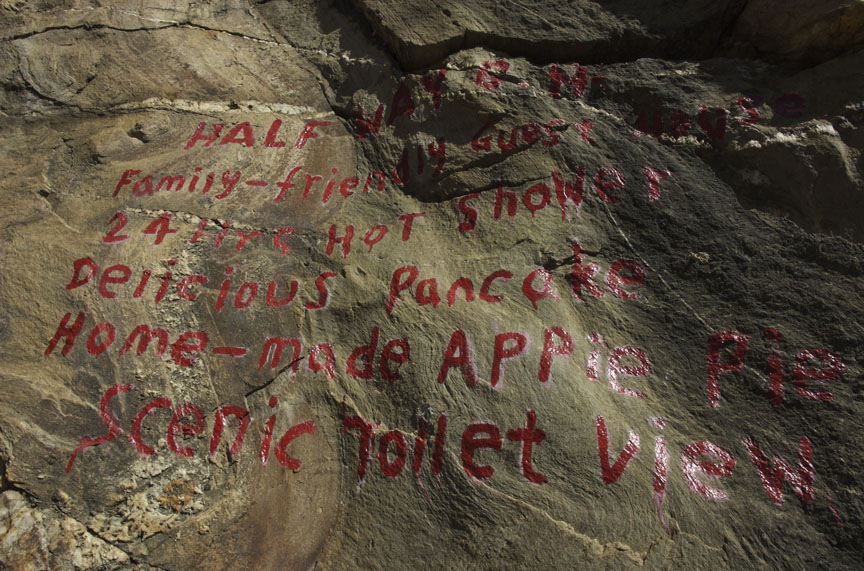 HALF WAY
Family-friendly Guest House
24 Hrs HOT Shower
Delicious Pancake
Home-made APPie Pie
Scenic Toilet View